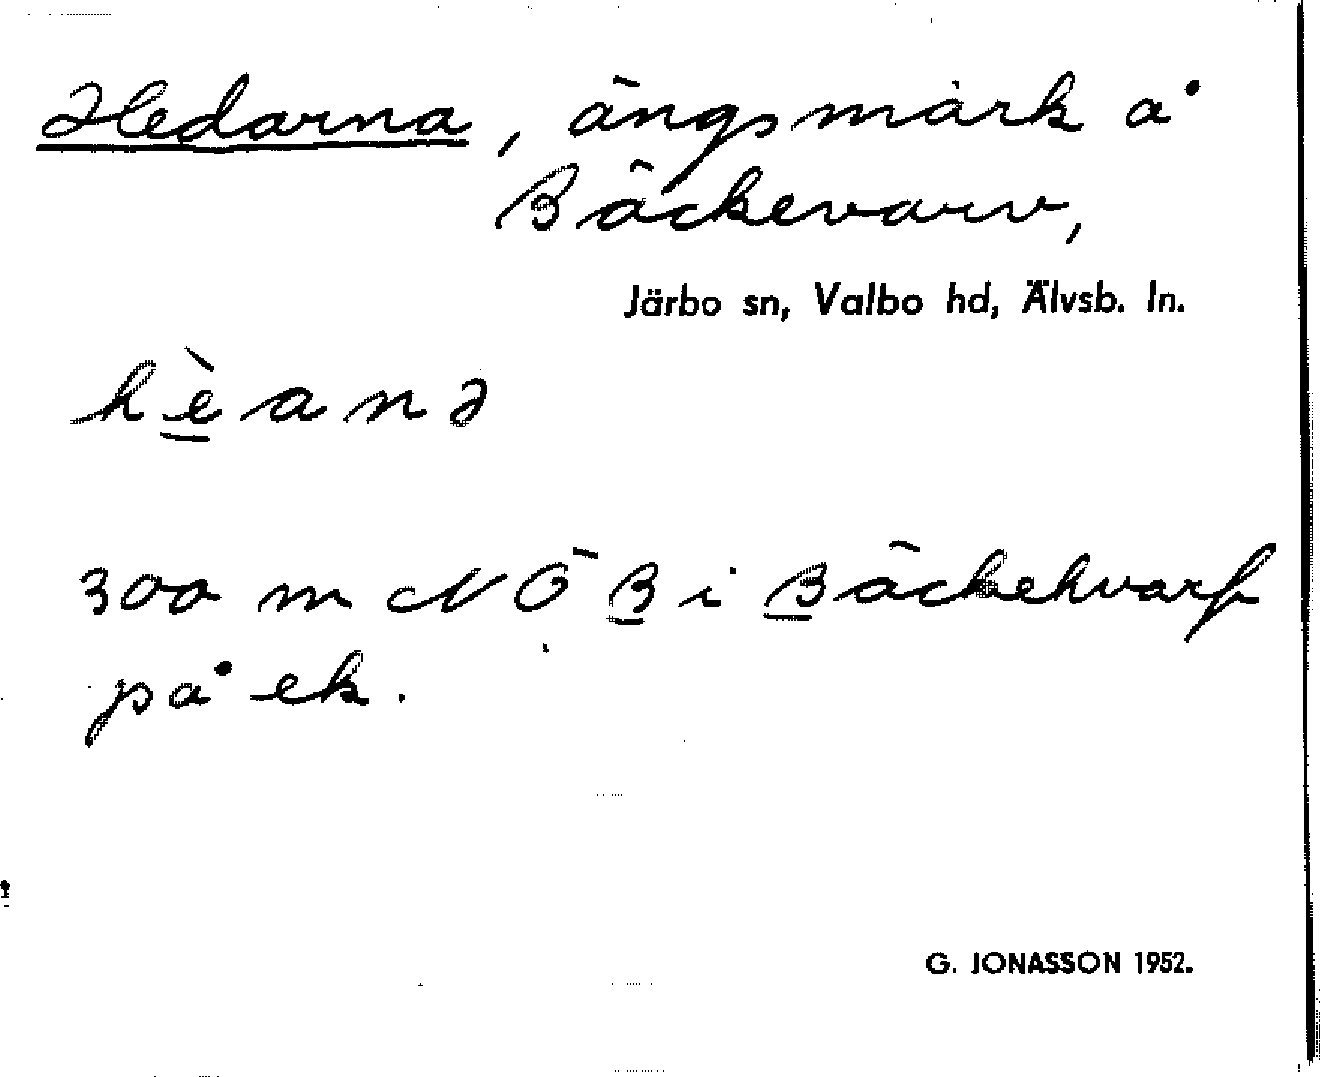 Hedarna, ängsmark å
Bäckevarv,
Järbo sn, Valbo hd, Älvsb. ln.
hè̱anə
300 m NÖ B i Bäckehvarf
på ek.
G. JONASSON 1952.